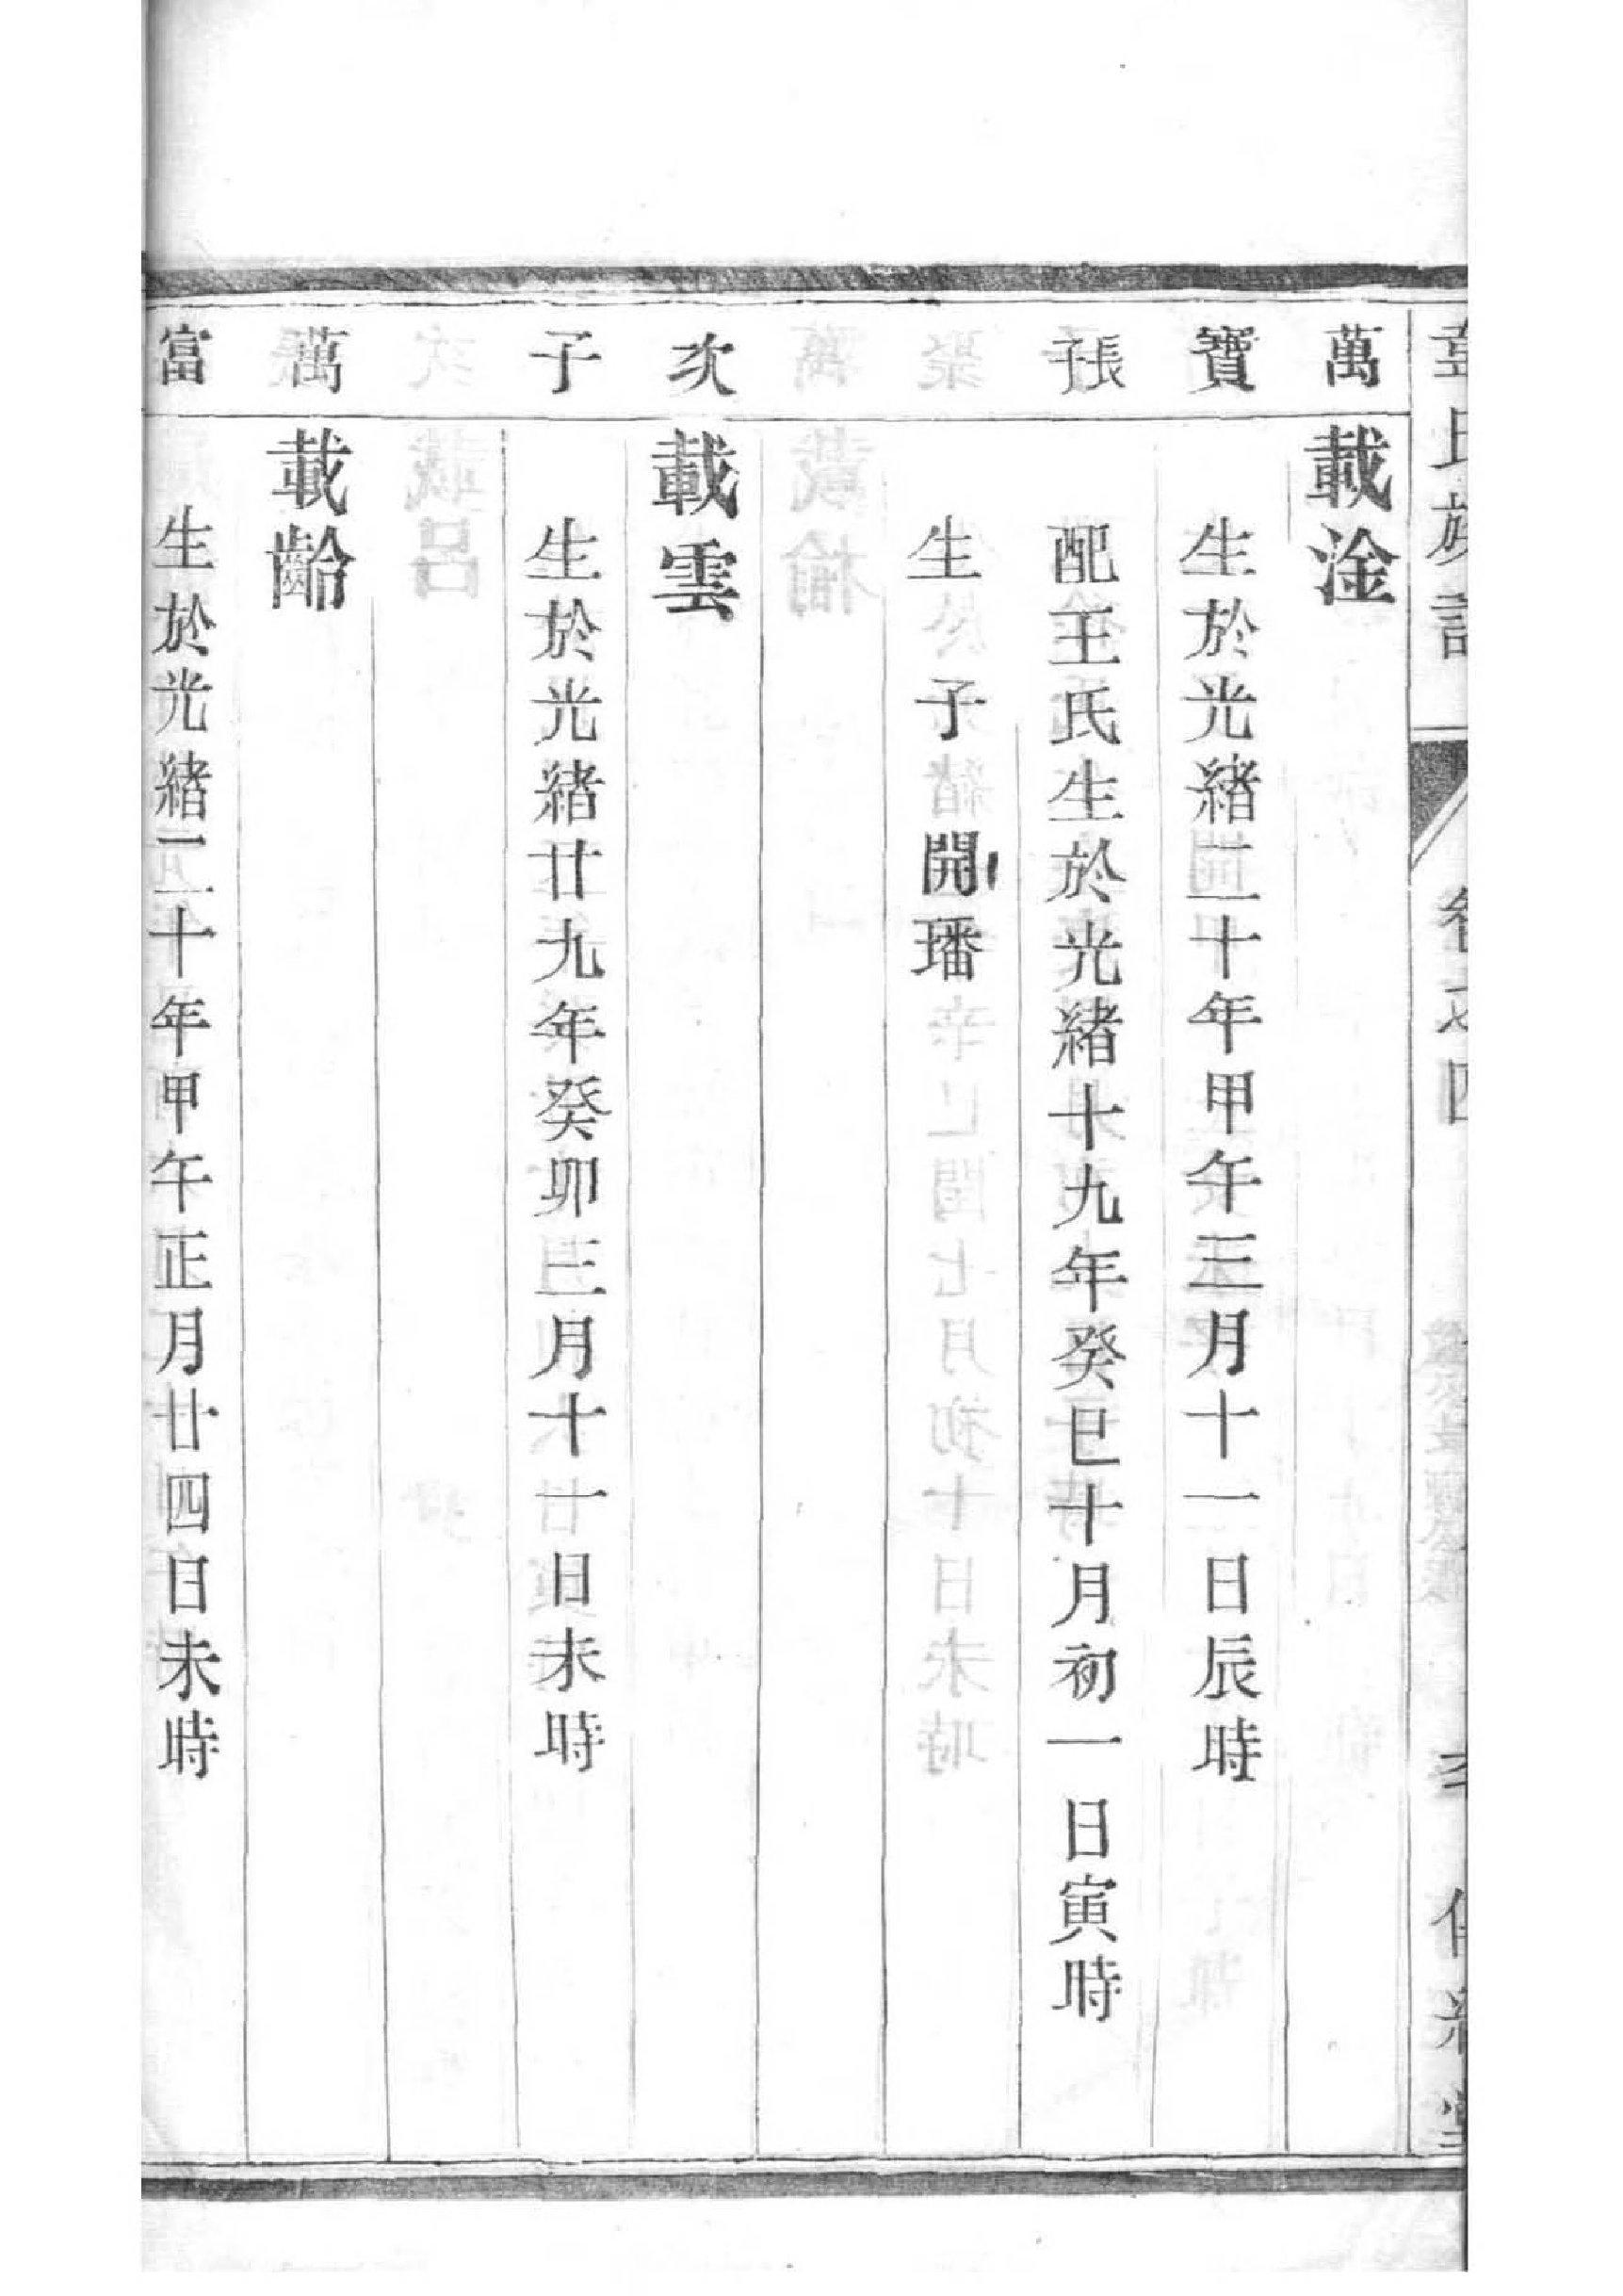 氏族譜 卷之四
萬 載淦
寶 生於光緒二十年甲午三月十一日辰時
張 配王氏生於光緒十九年癸巳十月初一日寅時
生 子 開璠
次 載雲
子 生於光緒廿九年癸卯三月十一日未時
萬 載齡
富 生於光緒二十年甲午正月廿四日未時